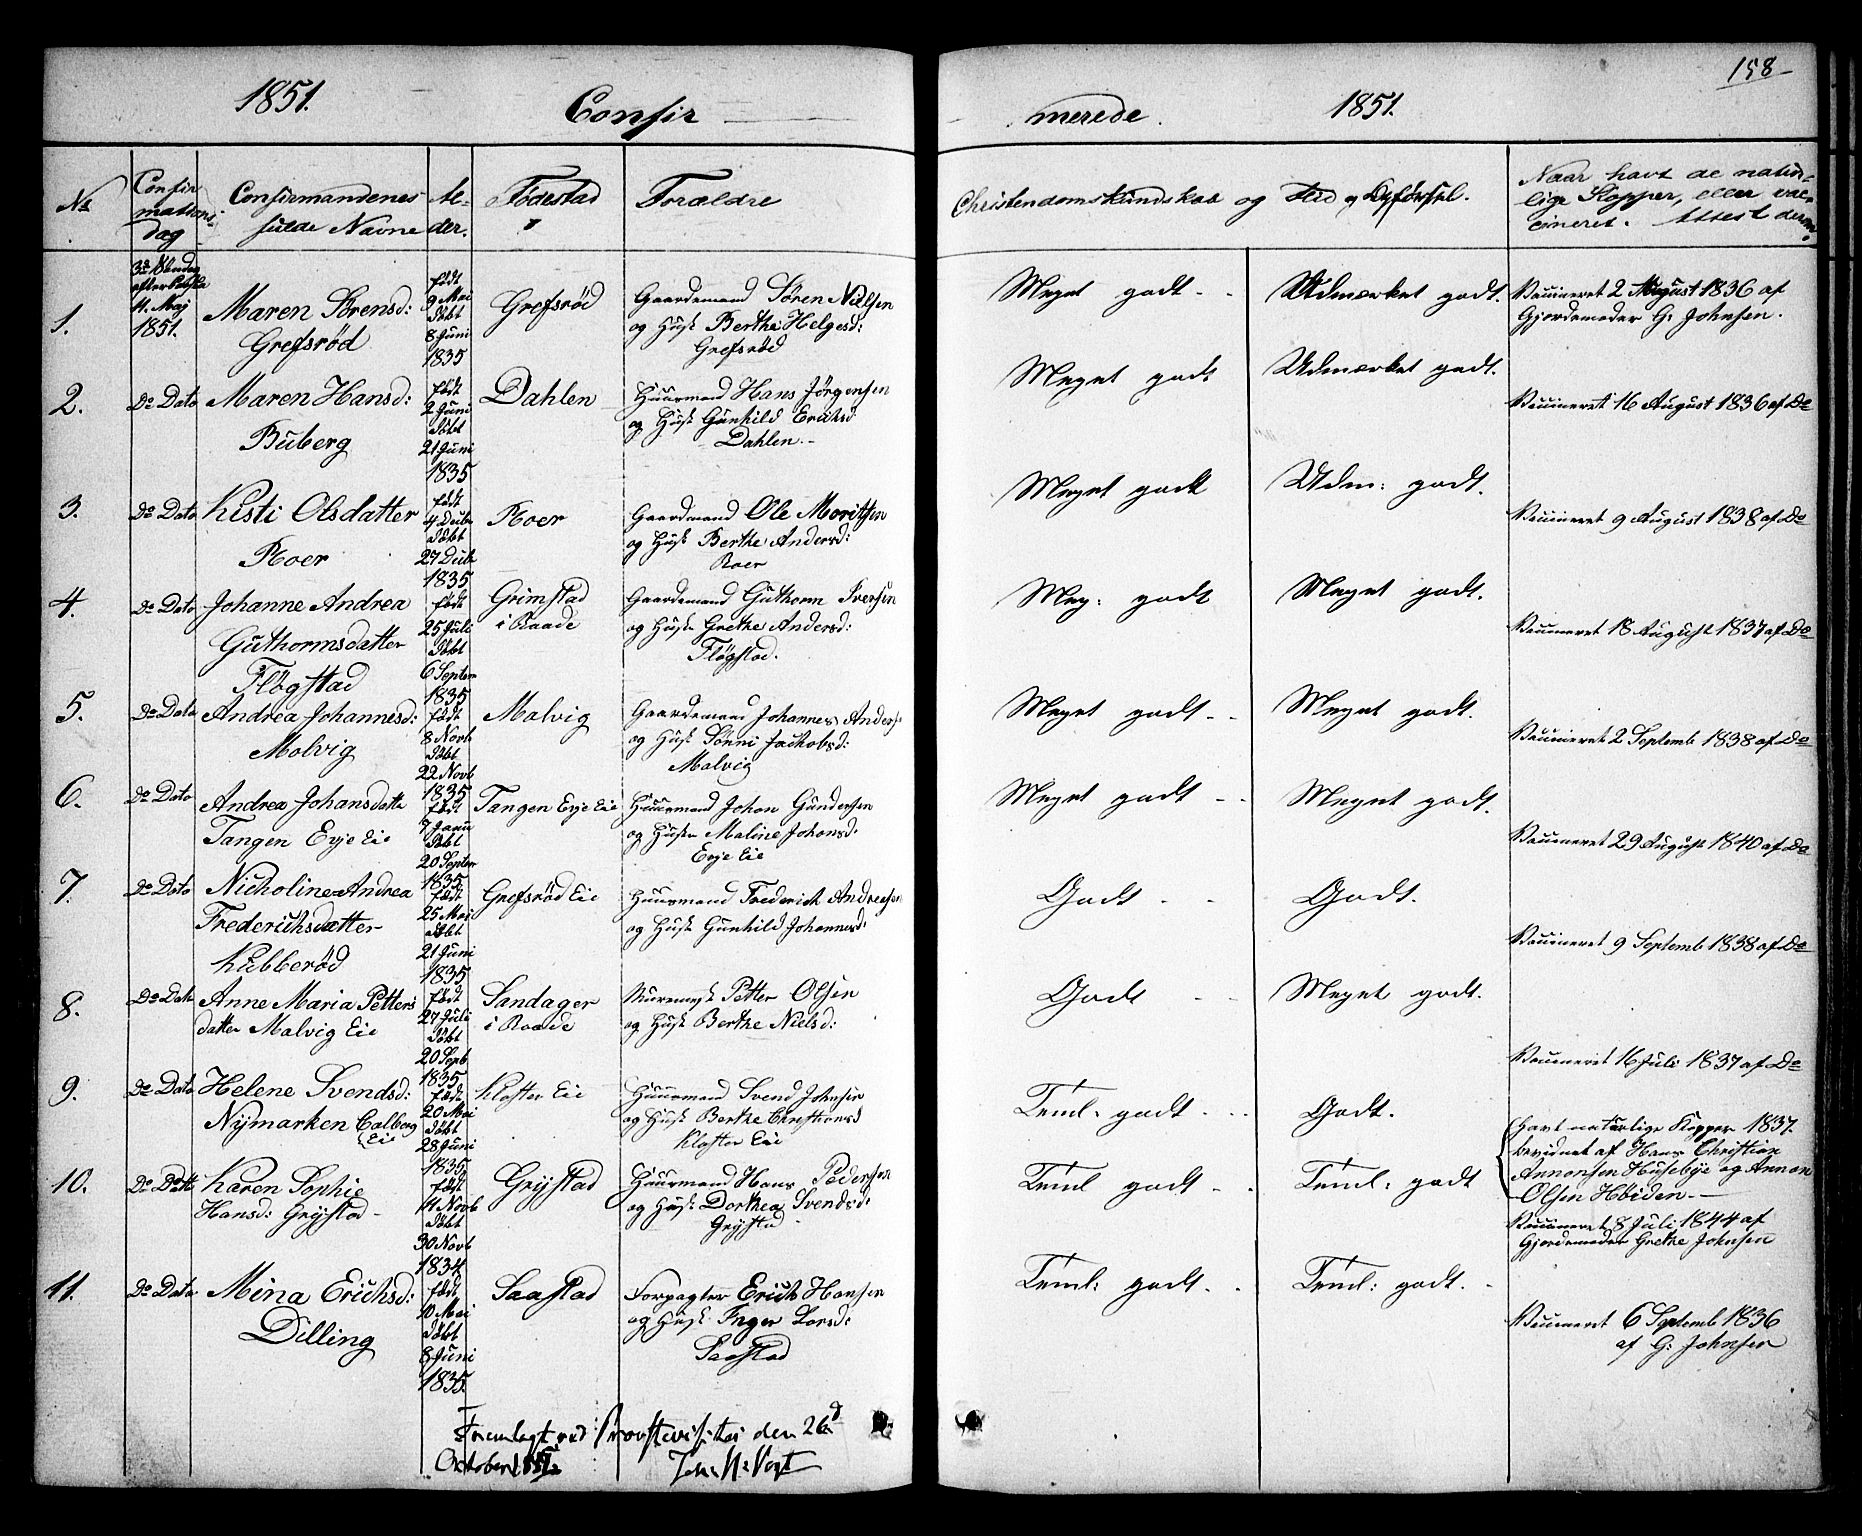 158
1851. Confir merede. 1851.
No
Confir
mations
dag
Confirmandenes
fulde Navne
Al-
der.
Födestad
Forældre
Christendomskundskab og Flid og Opførsel.
Naar havt de natur-
lige Kopper, eller vac-
cineret. Attest derom.
1.
3die Söndag
efter Paaske
11. Maj
1851.
Maren Sörensd:
Grefsröd
født
9 Mai
døbt
8 Juni
1835
Grefsröd
Gaardemand Sören Nielsen
og Husk Berthe Helgesd:
Grefsröd
Meget godt - -
Udmærket godt.
Vaccineret 2 August 1836 af
Gjordemoder G: Johnsen.
2.
Do Dato
Maren Hansd:
Buberg
født
2 Juni
døbt
21 Juni
1835
Dahlen
Huusmand Hans Jörgensen
og Husk Gunhild Eriksd:
Dahlen.-
Meget godt
Udmærket godt.
Vaccineret 16 August 1836 af Do
3.
Do Dato
Kisti Olsdatter
Roer
født
4 Decbr
døbt
27 Decb
1835
Roer
Gaardmand Ole Moritsen
og Husk Berthe Andersd:
Roer
Meget godt
Udm: godt.
Vaccineret 9 August 1838 af Do
4.
Do Dato
Johanne Andrea
Guthormsdatter
Fløgstad
født
25 Juli
døbt
6 Septem
1835
Grimstad
i Raade
Gaardemand Guthorm Iversen
og Husk Grethe Andersd:
Fløgstad.
Meg: godt
Meget godt.
Vaccineret 18 August 1837 af Do
5.
Do Dato
Andrea Johannesd:
Molvig
født
8 Novb
døbt
22 Novb
1835
Malvig
Gaardemand Johannes Anders
og Husk Sönni Jachobsd:
Malvig
Meget godt - -
Meget godt.
Vaccineret 2 Septemb 1838 af Do
6.
Do Dato
Andrea Johansdatte
Tangen Evje Eie
født
7 Janu
døbt
20 Septer
1835
Tangen Evje Eie
Huusmand Johan Gundersen
og Husk Maline Johansd:
Evje Eie
Meget godt - -
Meget godt.
Vaccineret 29 August 1840 af Do
7.
Do Dato
Nicholine Andrea
Frederichsdatter
Kubberød
født
25 Mai
døbt
21 Juni
1835
Grefsröd Eie
Huusmand Frederich Andresen
og Husk Gunhild Johannesd:
Godt - -
Godt.
Vaccineret 9 Septemb 1838 af Do
8.
Do Dato
Anne Maria Petters
datter Malvig Eie
født
27 Juli
døbt
20 Septb
1835
Sandager
i Raade
Petter Olsen
og Husk Berthe Nielsd:
Godt - -
Meget godt.
Vaccineret 16 Juli 1837 af Do
9.
Do Dato
Helene Svendsd:
Nymarken Calberg
Eie
født
20 Mai
døbt
28 Juni
1835
Kloster Eie
Huusmand Svend Johnsen
og Husk Berthe Christiansd
Kloster Eie
Teml. godt - -
Godt.
havt naturlige Kopper 1837.
bevidnet af Hans Christian
Annonsen Husebye og Annon
Olsen Høiden.-
10.
Do Dato
Karen Sophie
Hansd: Grystad -
født
11 Novb
døbt
30 Novb
1834
Grijstad
Huusmand Hans Pedersen
og Husk Dorthea Svendsd:
Grystad
Teml godt - -
Teml: godt
Vaccineret 8 Juli 1844 af
Gjordemoder Grethe Johnsen
11.
Do Dato
Mina Erichsd:
Dilling
født
10 Mai
døbt
8 Juni
1835.
Saastad
Forpagter Erich Hansen
og Husk Inger Larsd:
Saastad
Teml: godt. -
Teml: godt. -
Vaccineret 6 Septemb 1836
af G: Johnsen
Fremlagt ved Provstevisitas den 26d
October
Vogt